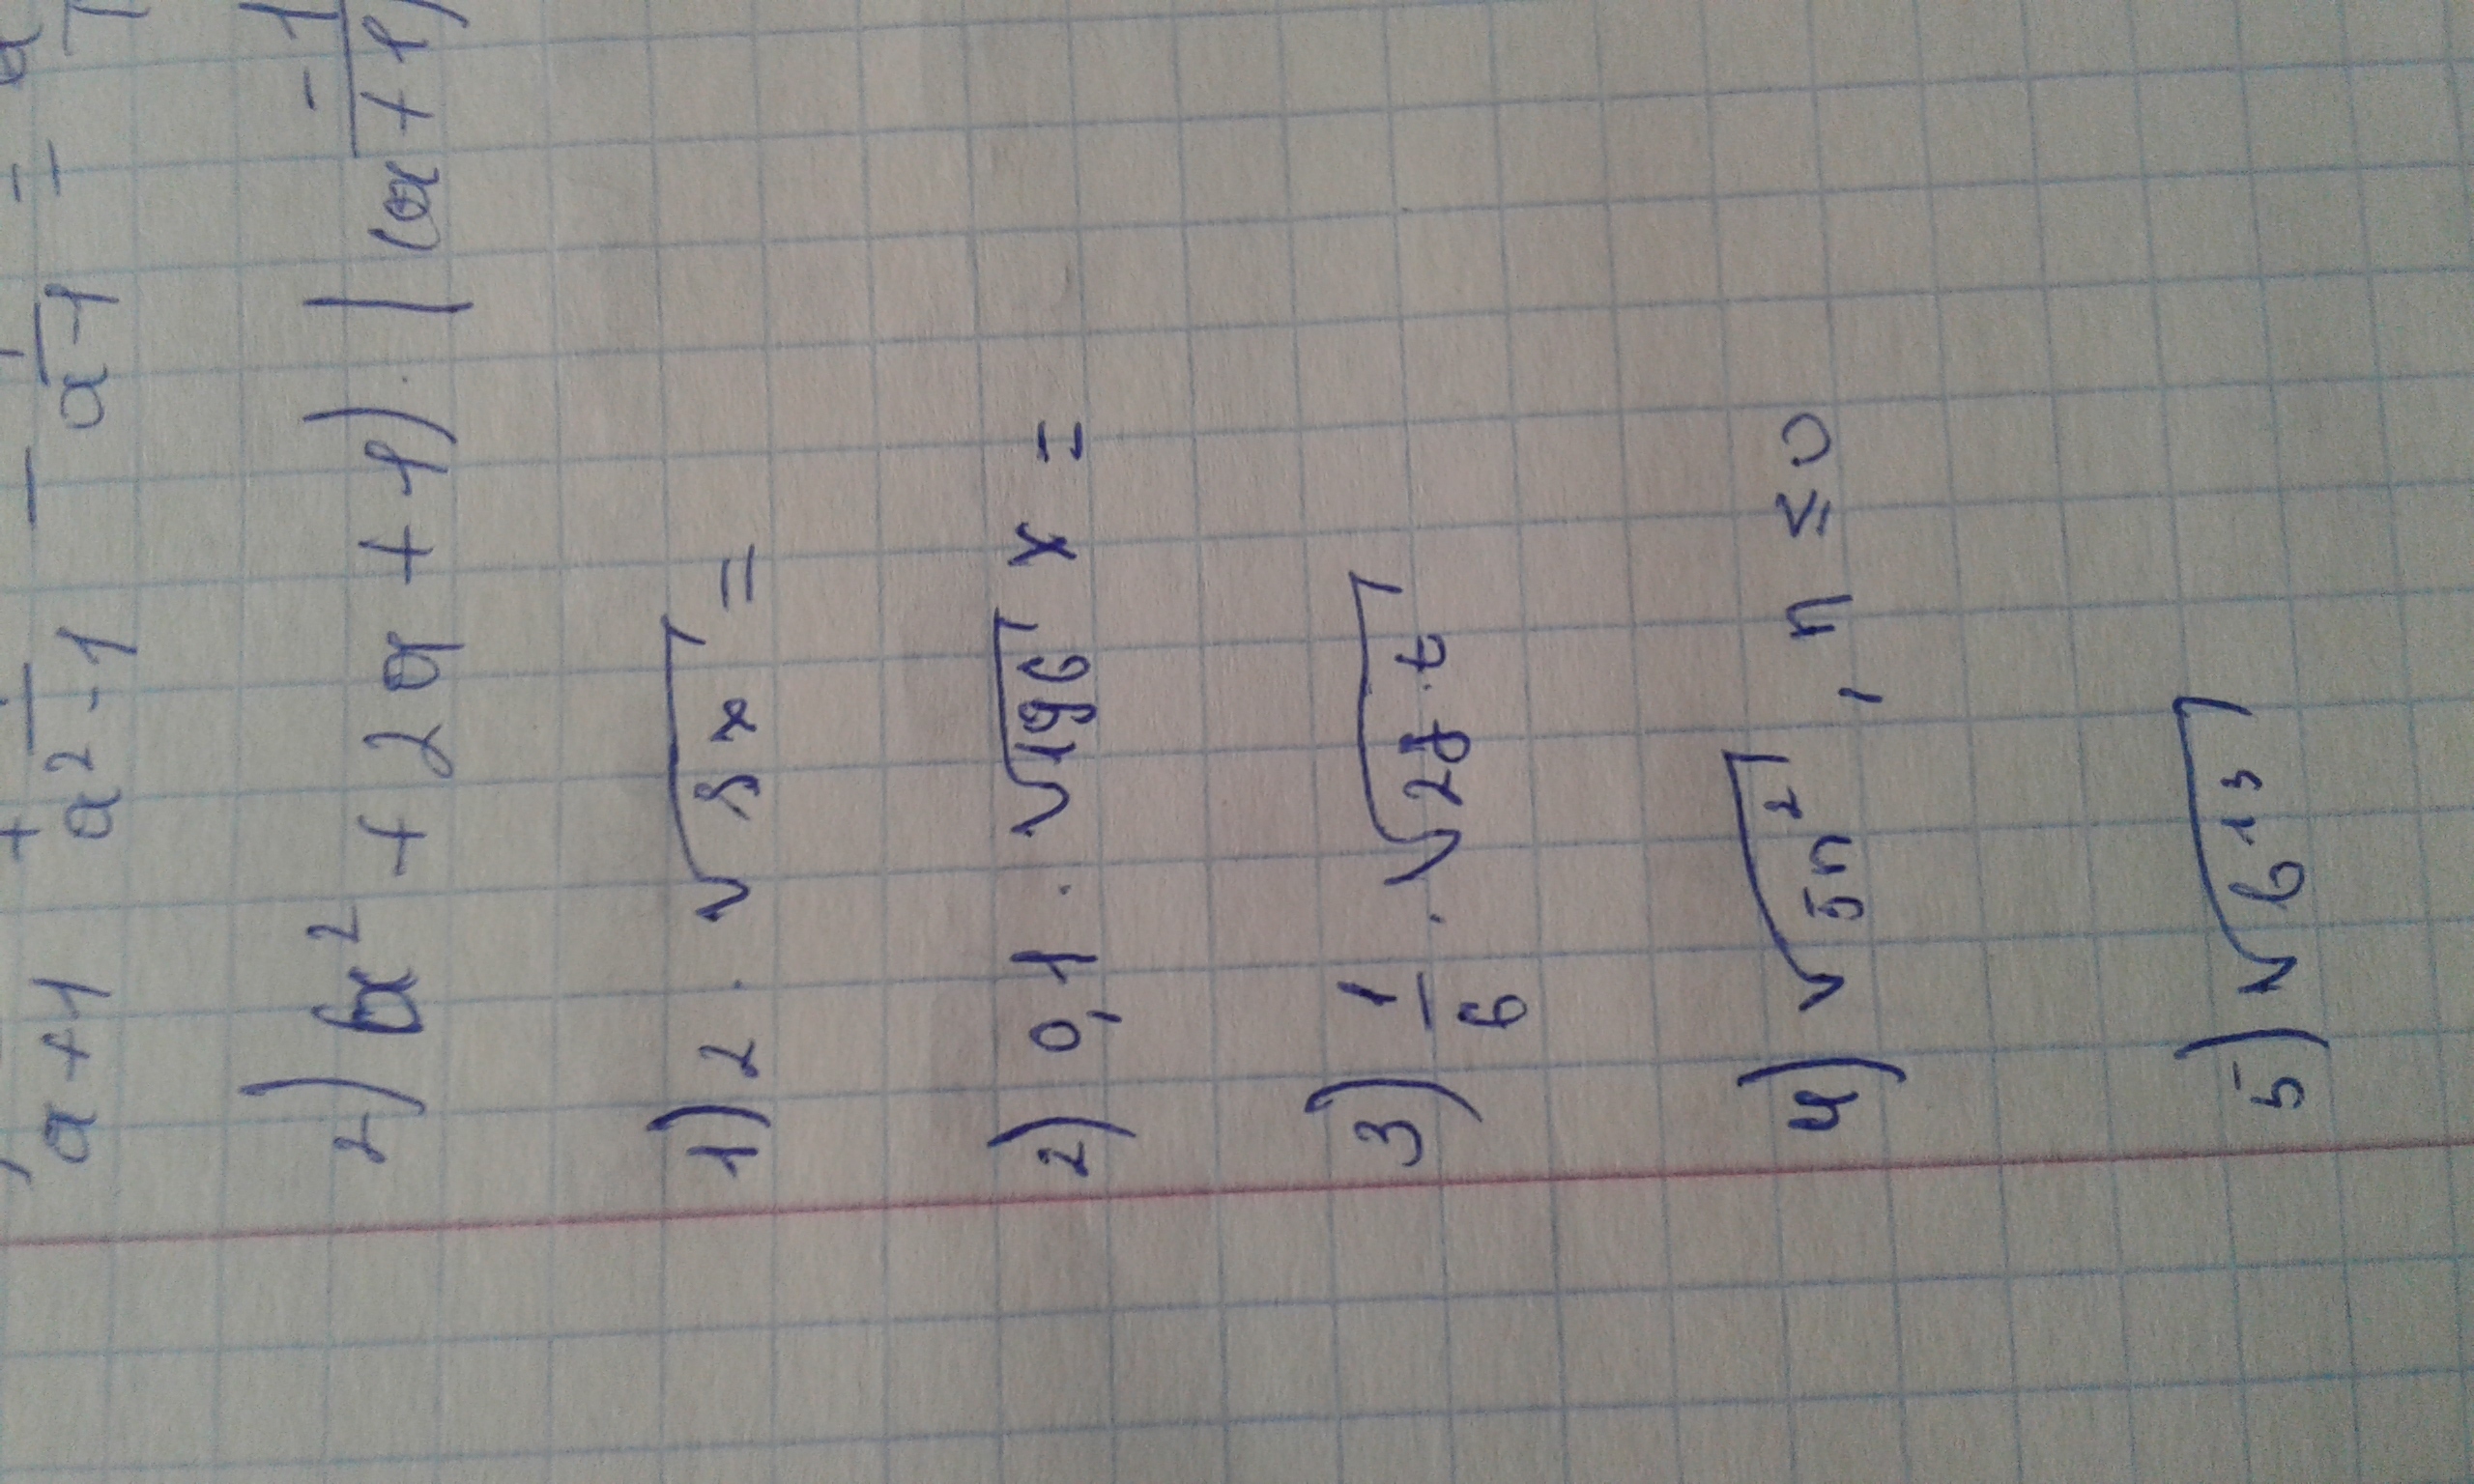 a+1 + a²-1 - a-1 =
2) (a² + 2a + 1) · | (a+1) - 1
1) 2 · √8x =
2) 0,1 · √196 x =
3) 1/6 · √27·t
4) √5n², n ≤ 0
5) √b¹³